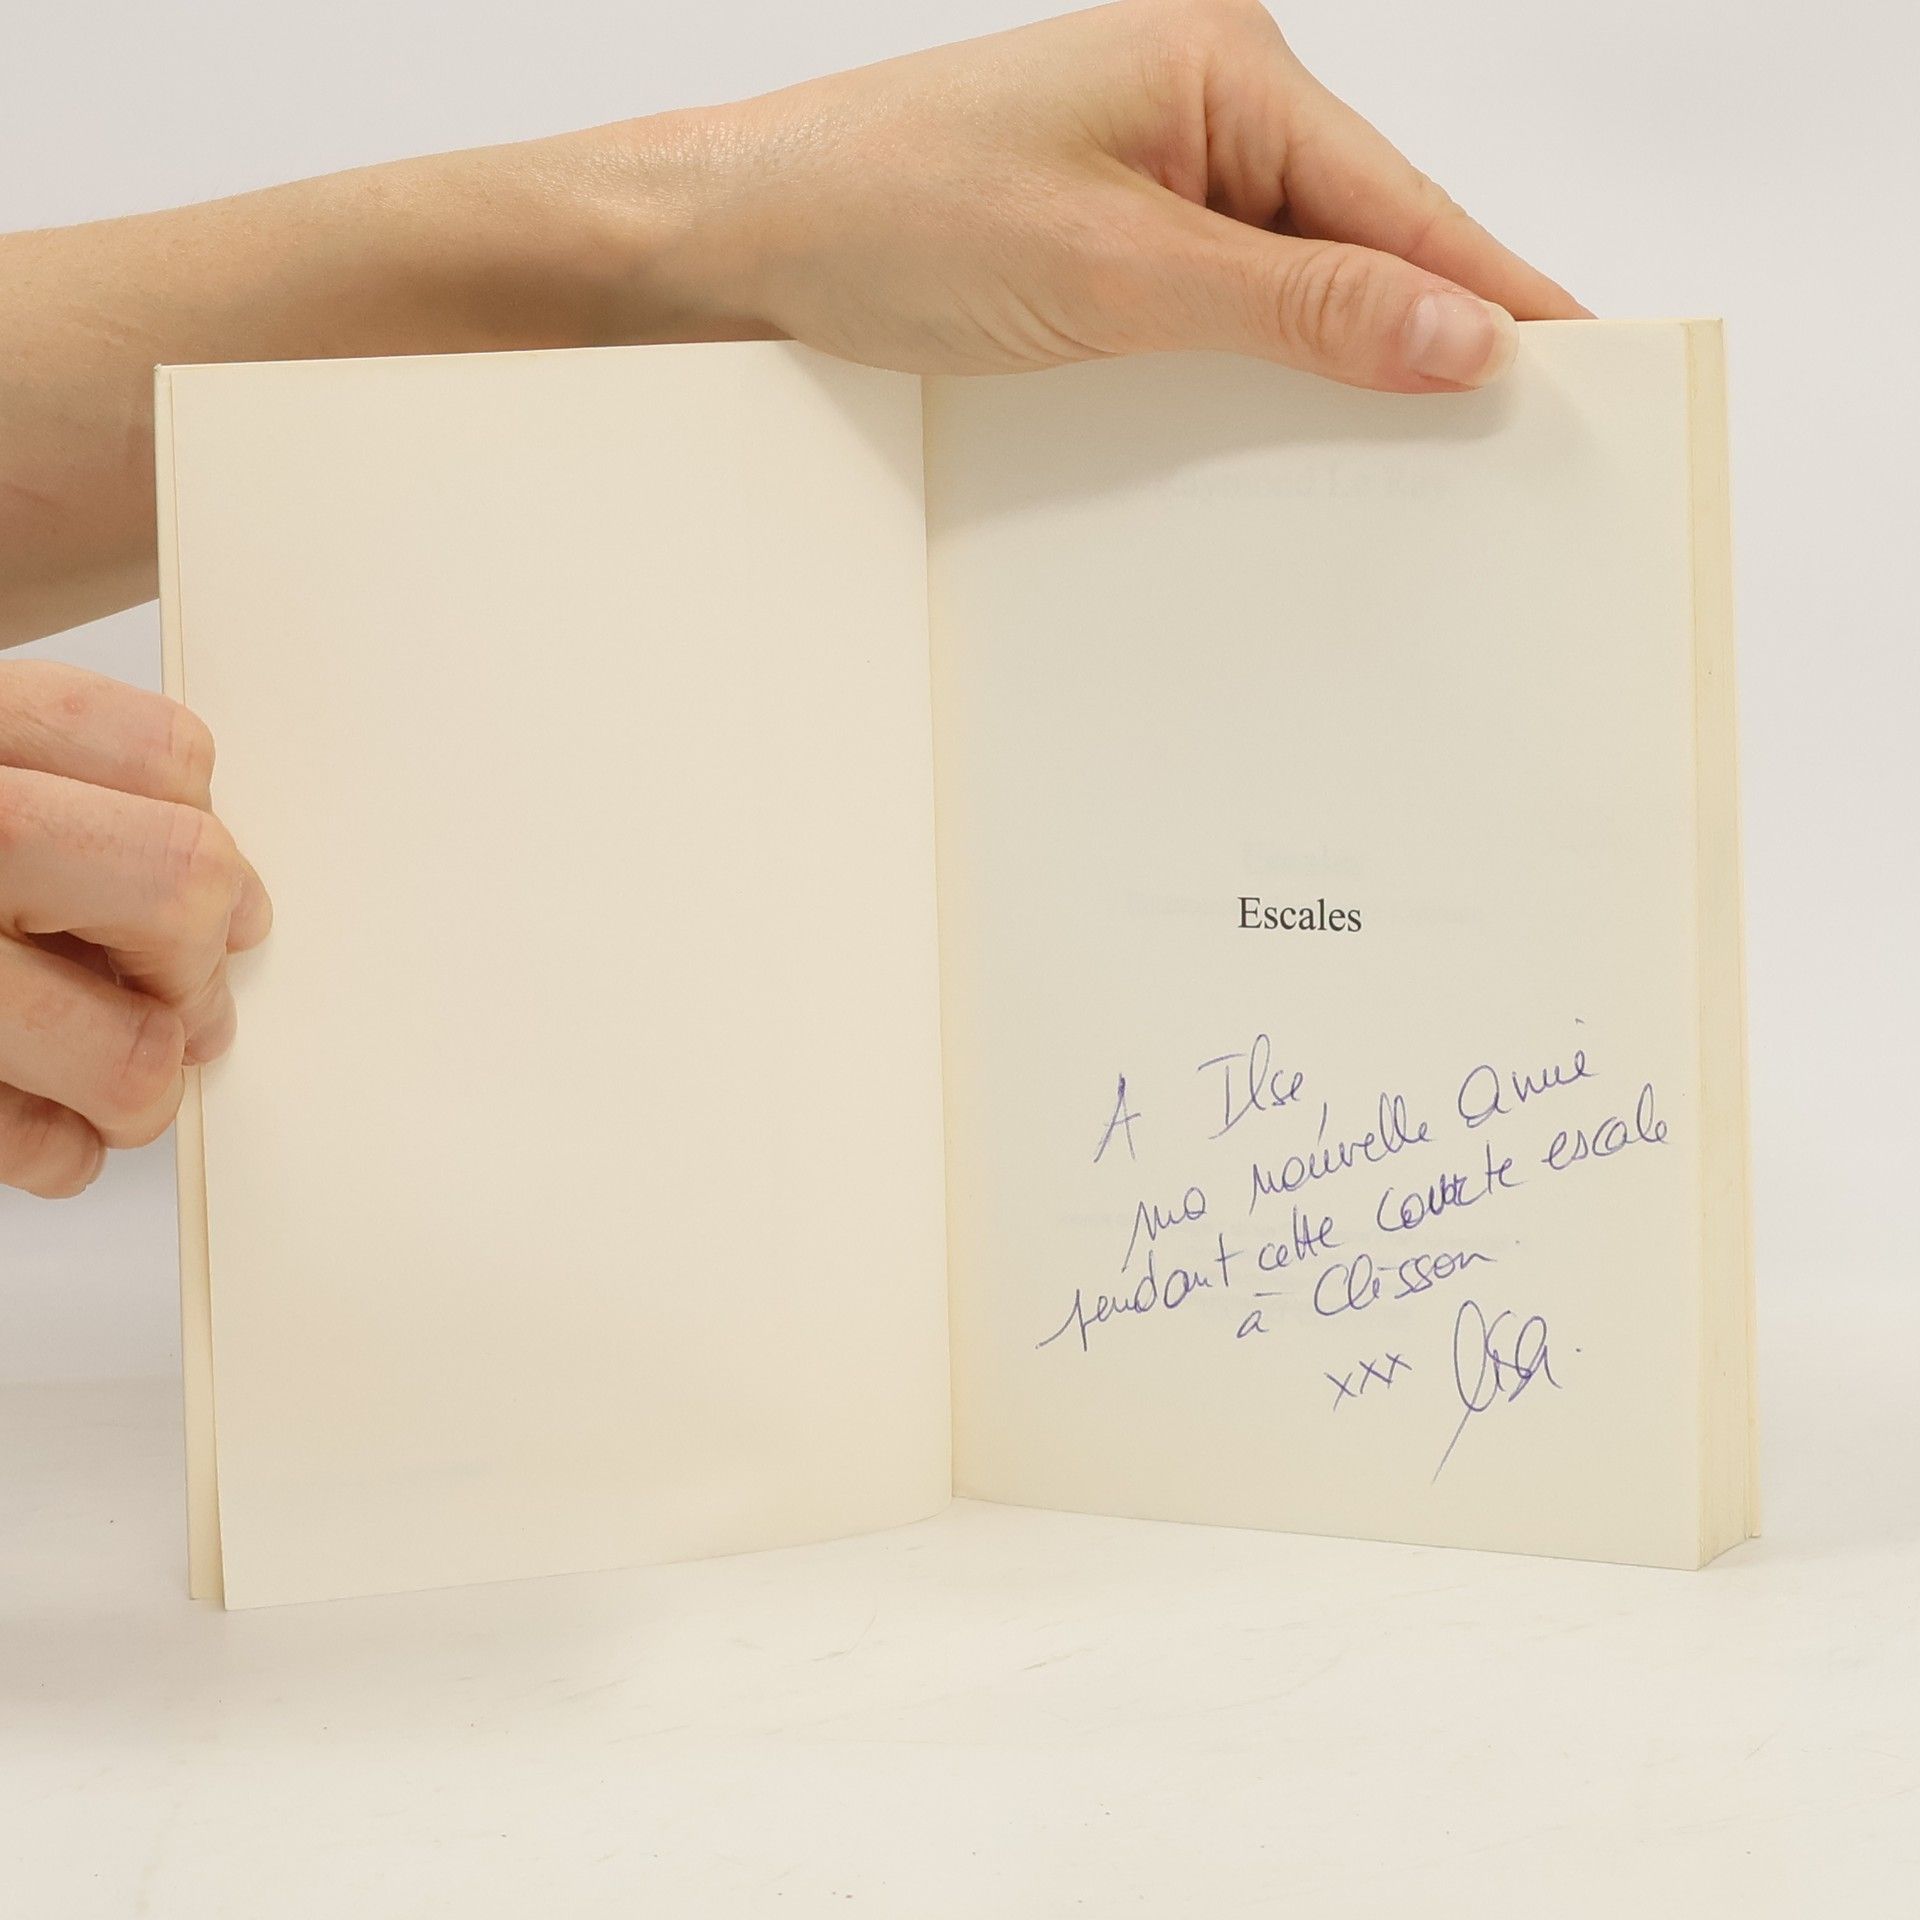 Escales
A Ilse,
ma nouvelle amie
pendant cette courte escale
à Clisson.
xxx Lisa.